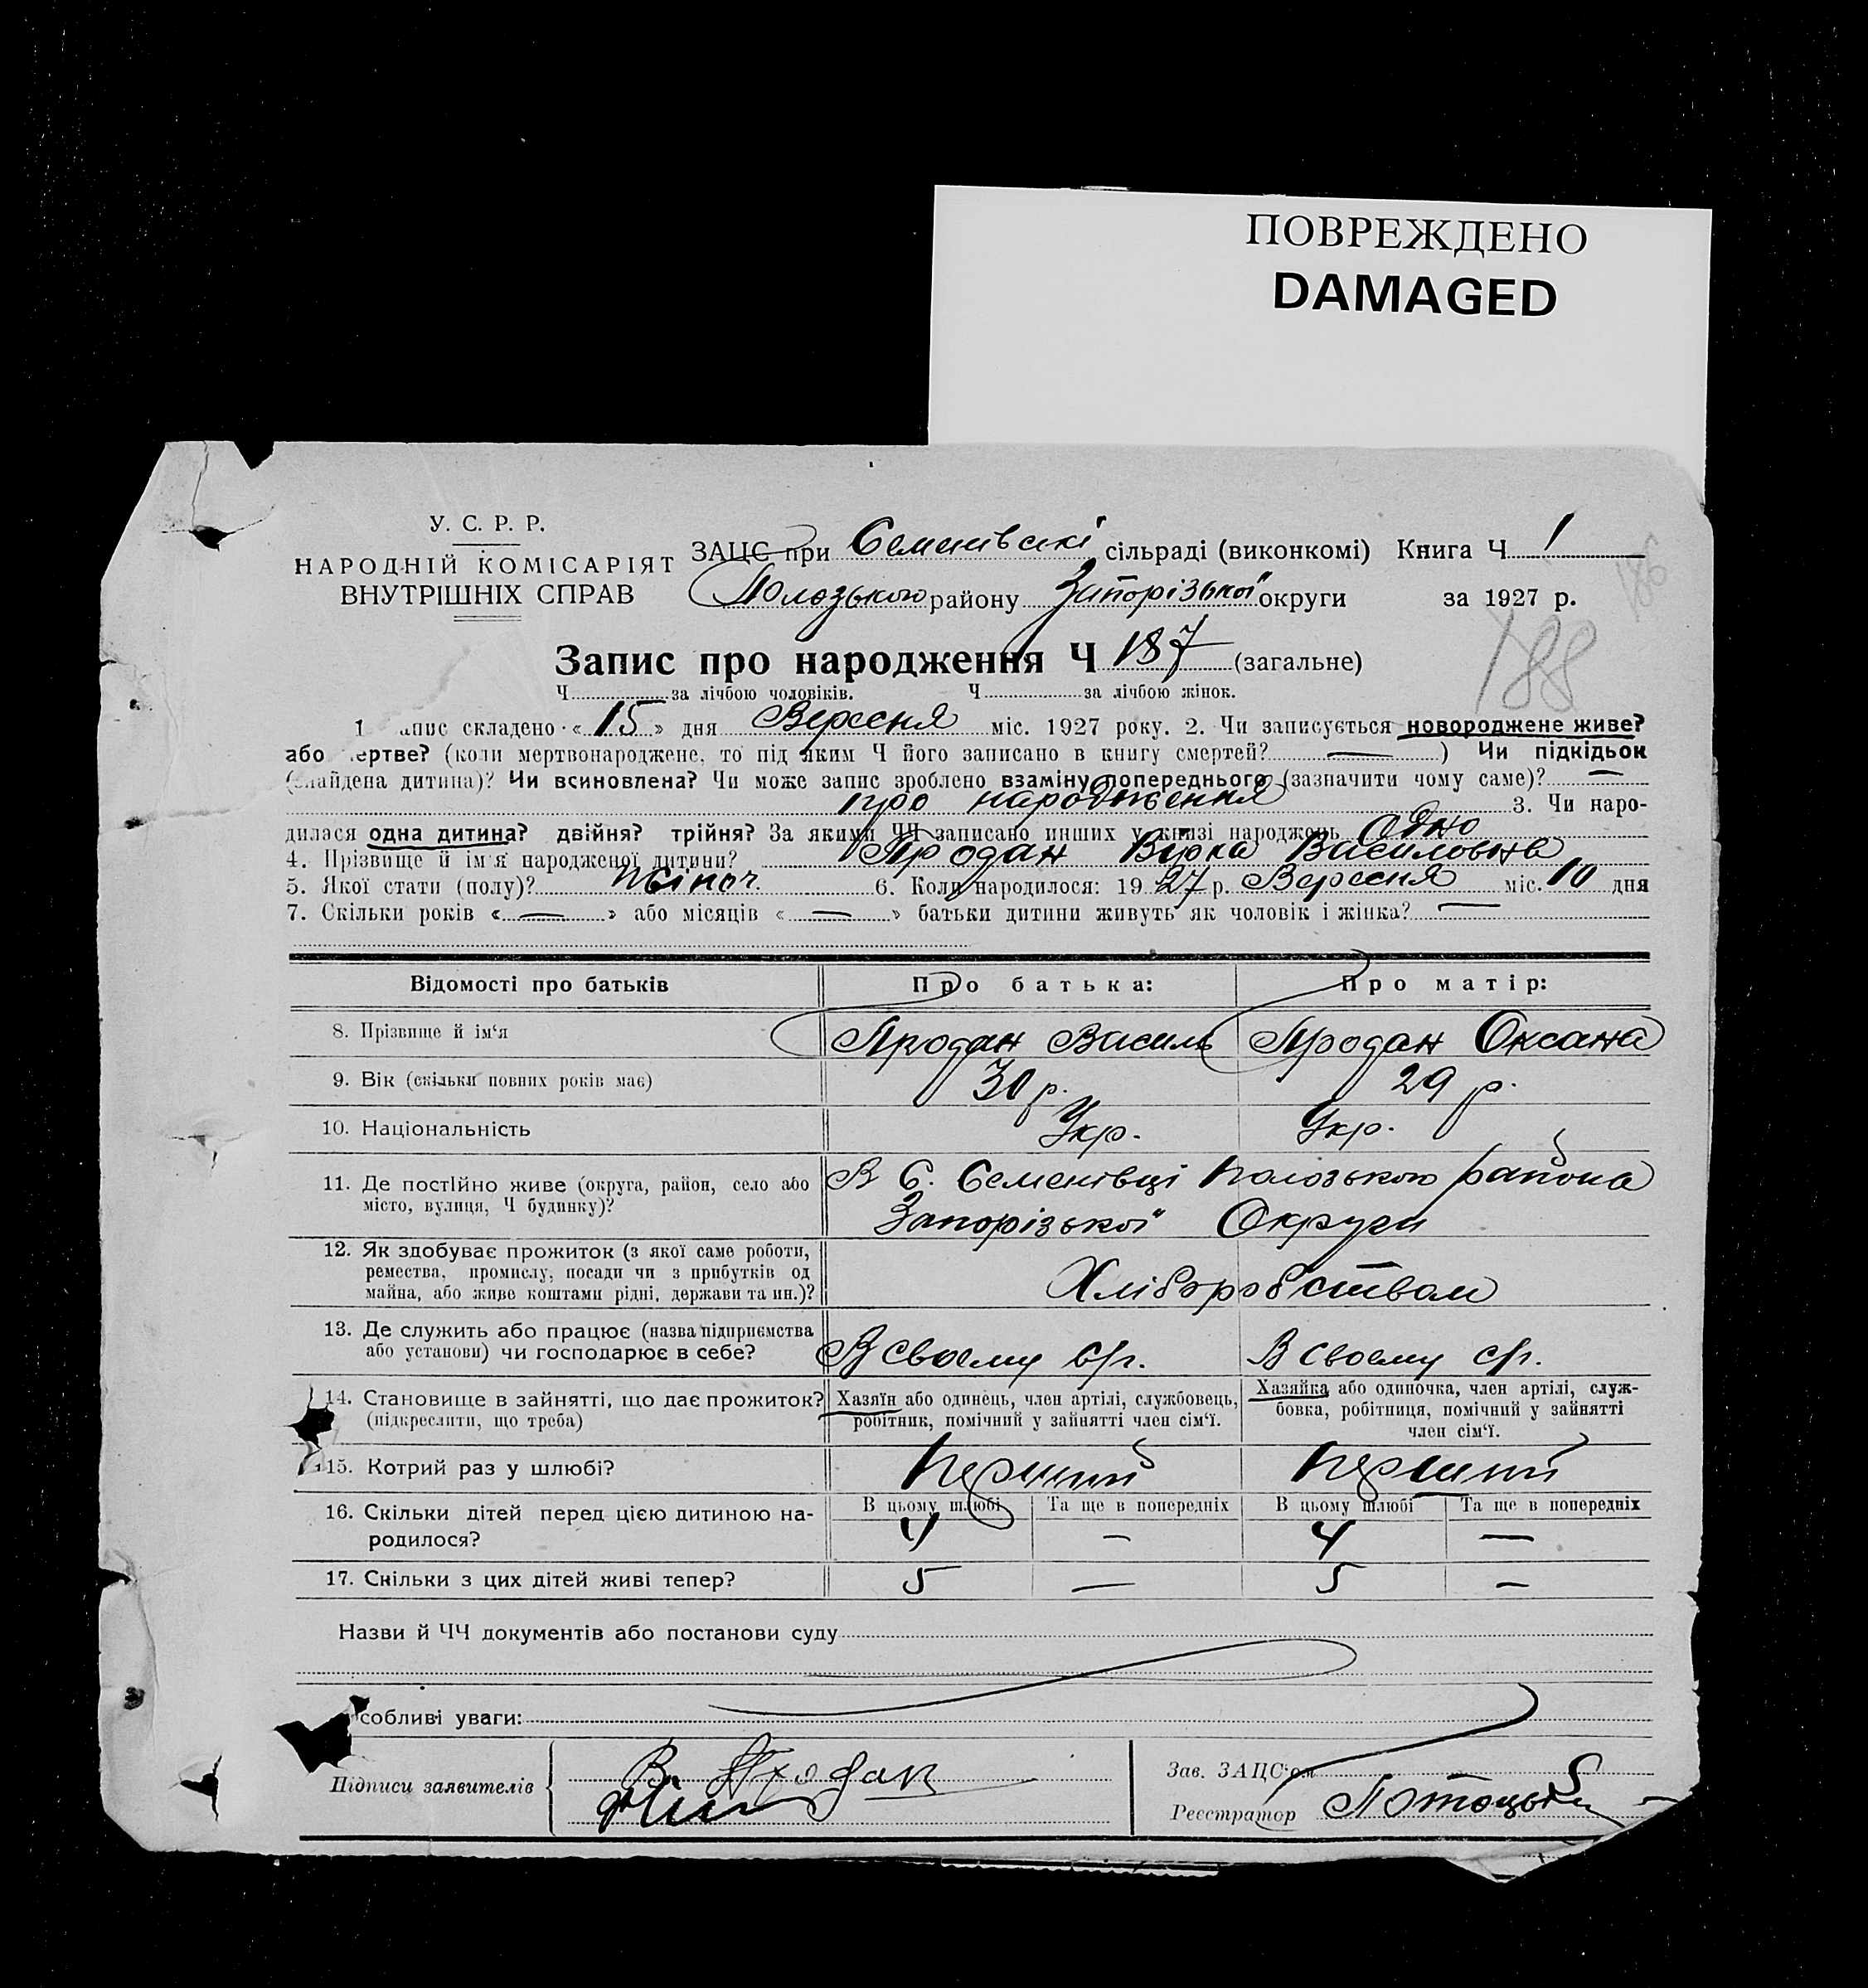 ПОВРЕЖДЕНО
DAMAGED
У. С. Р. Р.
НАРОДНІЙ КОМІСАРІЯТ
ВНУТРІШНІХ СПРАВ
ЗАЦС при Семенівскі сільраді (виконкомі) Книга Ч 1
186
Полозького району Запорізької округи за 1927 р.
188
Запис про народження Ч 187 (загальне)
Ч за лічбою чоловіків. Ч за лічбою жінок.
1 апис складено «15» дня Вересня міс. 1927 року. 2. Чи записується новороджене живе?
або ертве? (коли мертвонароджене, то під яким Ч його записано в книгу смертей? — ) Чи підкідьок
(найдена дитина)? Чи всиновлена? Чи може запис зроблено взаміну попереднього (зазначити чому саме)? —
про народження 3. Чи наро-
дилася одна дитина? двійня? трійня? За якими ЧЧ записано инших у книзі народжень Одно
4. Прізвище й ім'я народженої дитини? Продан Вірка Василовна
5. Якої стати (полу)? жіноч. 6. Коли народилося: 1927 р. Вересня міс. 10 дня
7. Скільки років « — » або місяців « — » батьки дитини живуть як чоловік і жінка? —
Відомості про батьків Про батька: Про матір:
8. Прізвище й ім'я Продан Василь Продан Оксана
9. Вік (скільки повних років має) 30 р. 29 р.
10. Національність Укр. Укр.
11. Де постійно живе (округа, район, село або
місто, вулиця, Ч будинку)?
В С. Семенівці Полозького района
Запорізької Округи
12. Як здобуває прожиток (з якої саме роботи,
ремества, промислу, посади чи з прибутків од
майна, або живе коштами рідні, держави та ин.)?
Хліборобством
13. Де служить або працює (назва підприємства
або установи) чи господарює в себе?
В своему с/г. В своему с/г.
14. Становище в зайнятті, що дає прожиток?
(підкреслити, що треба)
Хазяїн або одинець, член артілі, службовець,
робітник, помічний у зайнятті член сім'ї.
Хазяйка або одиночка, член артілі, служ-
бовка, робітниця, помічний у зайнятті
член сім'ї.
15. Котрий раз у шлюбі? Первий Первий
16. Скільки дітей перед цією дитиною на-
родилося?
В цьому шлюбі Та ще в попередніх В цьому шлюбі Та ще в попередніх
4 — 4 —
17. Скільки з цих дітей живі тепер? 5 — 5 —
Назви й ЧЧ документів або постанови суду
собливі уваги:
Підписи заявителів В. Продан
Зав. ЗАЦС'ом
Реєстратор Потоцький